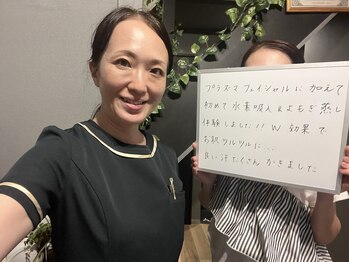 プラズマフェイシャルに加えて
初めて水素吸入&よもぎ蒸し
体験しました!! W効果で
お肌ツルツルに...
良い汗たくさんかきました